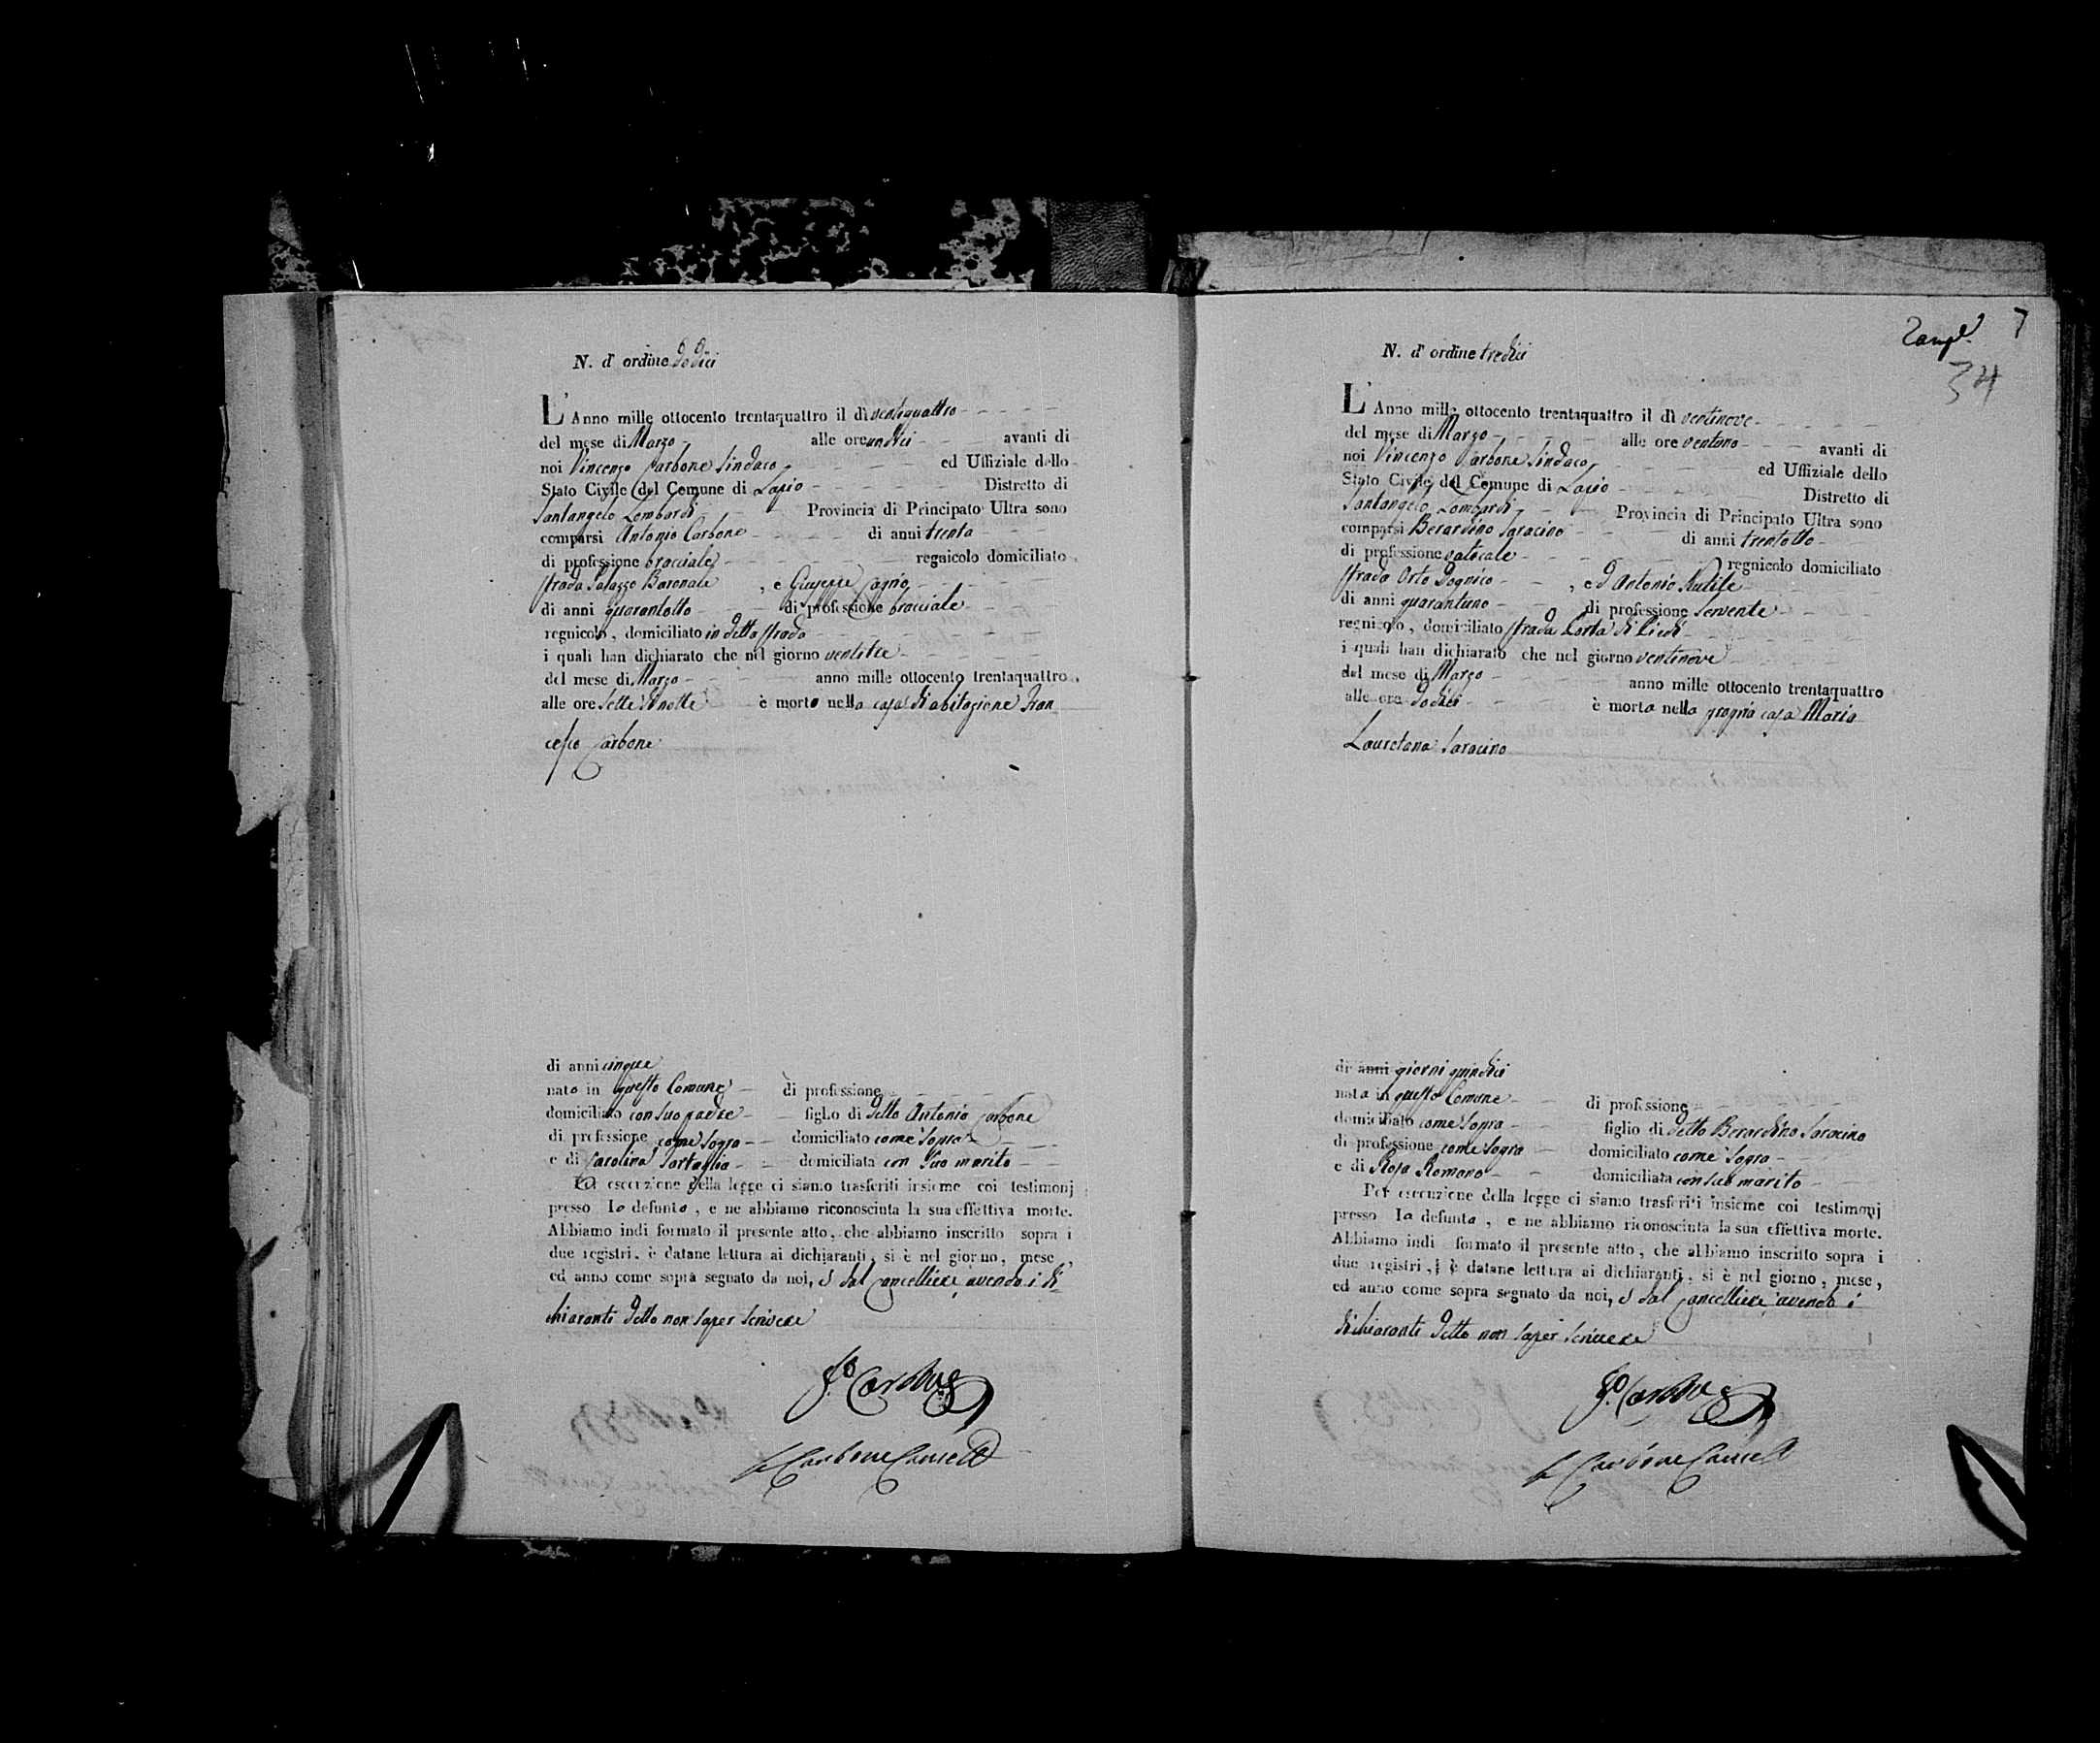 N. d' ordine dodici
L' Anno mille ottocento trentaquattro il dì ventiquattro
del mese di Marzo alle ore undici avanti di
noi Vincenzo Carbone Sindaco ed Uffiziale dello
Stato Civile del Comune di Lapio Distretto di
Santangelo Lombardi Provincia di Principato Ultra sono
comparsi Antonio Carbone di anni trenta
di professione bracciale regnicolo domiciliato
strada Palazzo Baronale, e Giuseppe
di anni quarantotto di professione bracciale
regnicolo, domiciliato in detta strada
i quali han dichiarato che nel giorno ventitre
del mese di Marzo anno mille ottocento trentaquattro
alle ore sette di notte è morto nella casa di abitazione Fran
cesco Carbone
di anni cinque
nato in questo Comune di professione
domiciliato con suo padre figlio di detto Antonio Carbone
di professione come sopra domiciliato come sopra
e di Carolina Tartaglia domiciliata con suo marito
Per esecuzione della legge ci siamo trasferiti insieme coi testimonj
presso lo defunto, e ne abbiamo riconosciuta la sua effettiva morte.
Abbiamo indi formato il presente atto, che abbiamo inscritto sopra i
due registri, e datane lettura ai dichiaranti, si è nel giorno, mese,
ed anno come sopra segnato da noi, e dal Cancelliere, avendo i di
chiaranti detto non saper scrivere
Carbone
Carbone Cancell
7
34
N. d' ordine tredici
L' Anno mille ottocento trentaquattro il dì ventinove
del mese di Marzo alle ore ventuno avanti di
noi Vincenzo Carbone Sindaco ed Uffiziale dello
Stato Civile del Comune di Lapio Distretto di
Santangelo Lombardi Provincia di Principato Ultra sono
comparsi Berardino Saracino di anni trentotto
di professione vaticale regnicolo domiciliato
strada Orto, ed Antonio
di anni quarantuno di professione servente
regnicolo, domiciliato strada Porta di Piedi
i quali han dichiarato che nel giorno ventinove
del mese di Marzo anno mille ottocento trentaquattro
alle ore dodici è morta nella propria casa Maria
Lauretana Saracino
di anni giorni quindici
nata in questo Comune di professione
domiciliato come sopra figlio di detto Berardino Saracino
di professione come sopra domiciliato come sopra
e di Rosa Romano domiciliata con suo marito
Per esecuzione della legge ci siamo trasferiti insieme coi testimonj
presso la defunta, e ne abbiamo riconosciuta la sua effettiva morte.
Abbiamo indi formato il presente atto, che abbiamo inscritto sopra i
due registri, e datane lettura ai dichiaranti, si è nel giorno, mese,
ed anno come sopra segnato da noi, e dal Cancelliere avendo i
dichiaranti detto non saper scrivere
Carbone
Carbone Cancell